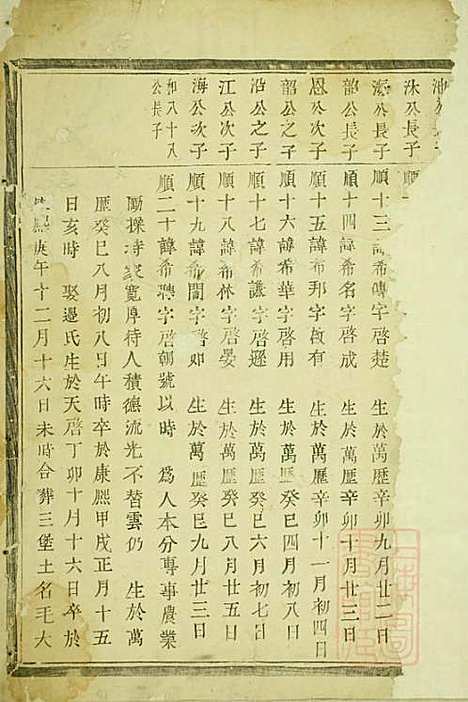 沐公長子 順
海公長子 順十三諱希傳字啓楚 生於萬歷辛卯九月廿二日
韶公長子 順十四諱希名字啓成 生於萬歷辛卯十月廿三日
恩公次子 順十五諱希邦字啟有 生於萬歷辛卯十一月初四日
韶公之子 順十六諱希華字啓用 生於萬歷癸巳四月初八日
沿公之子 順十七諱希謙字啓遜 生於萬歷癸巳六月初七日
江公次子 順十八諱希林字啓晏 生於萬歷癸巳八月廿五日
海公次子 順十九諱希閣字啓 生於萬歷癸巳九月廿三日
和八十八公長子 順二十諱希聘字啓朝號以時 為人本分專事農業
勵操持家寬厚待人積德流光不替雲仍 生於萬
歷癸巳八月初八日午時卒於康熙甲戌正月十五
日亥時 娶邊氏生於天啓丁卯十月十六日卒於
庚午十二月十六日未時合葬三堡土名毛大